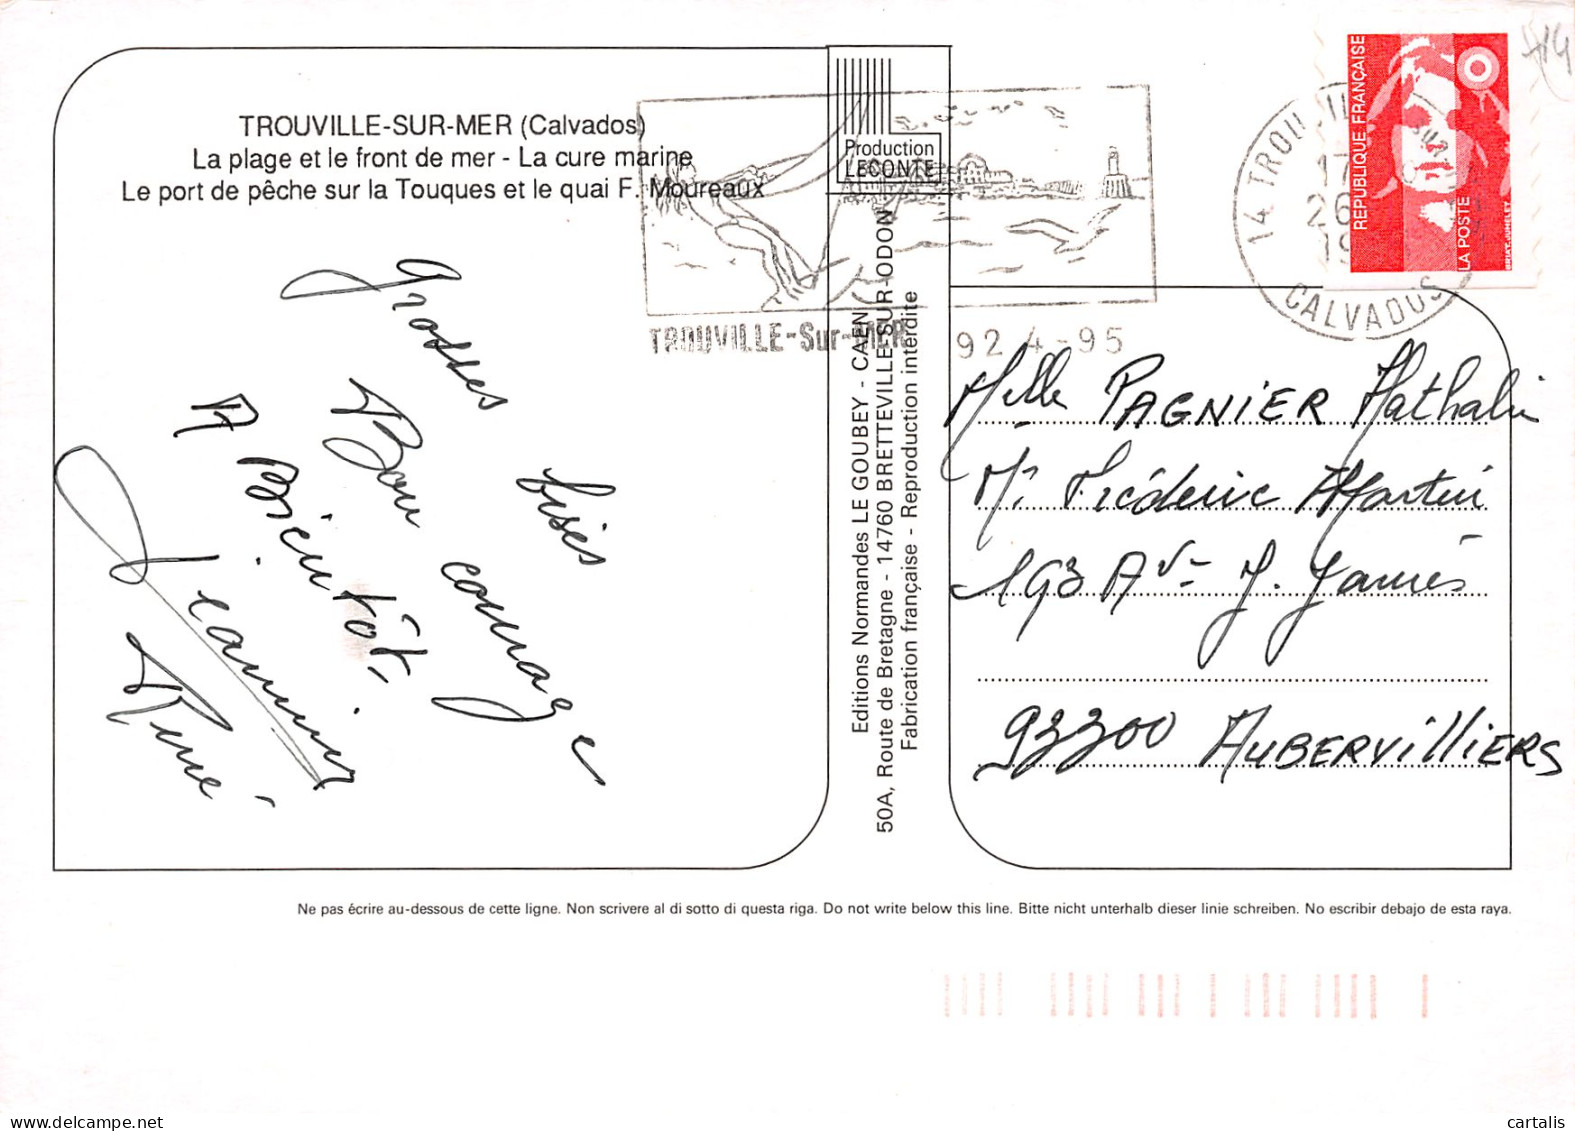 TROUVILLE-SUR-MER (Calvados)
La plage et le front de mer - La cure marine
Le port de pêche sur la Touques et le quai F. Moureaux
Grosses bises
Bon courage
A Bientôt
Jeannine
René
Production
LECONTE
Editions Normandes LE GOUBEY - CAEN
50A, Route de Bretagne - 14760 BRETTEVILLE-SUR-ODON
Fabrication française - Reproduction interdite
TROUVILLE-Sur-MER
92 4-95
14 TROU
17
26
19
CALVADOS
REPUBLIQUE FRANÇAISE
LA POSTE
Melle PAGNIER Nathalie
Mr Frédéric Martin
193 Av- J. Jaurès
93300 AUBERVILLIERS
Ne pas écrire au-dessous de cette ligne. Non scrivere al di sotto di questa riga. Do not write below this line. Bitte nicht unterhalb dieser linie schreiben. No escribir debajo de esta raya.
cartalis